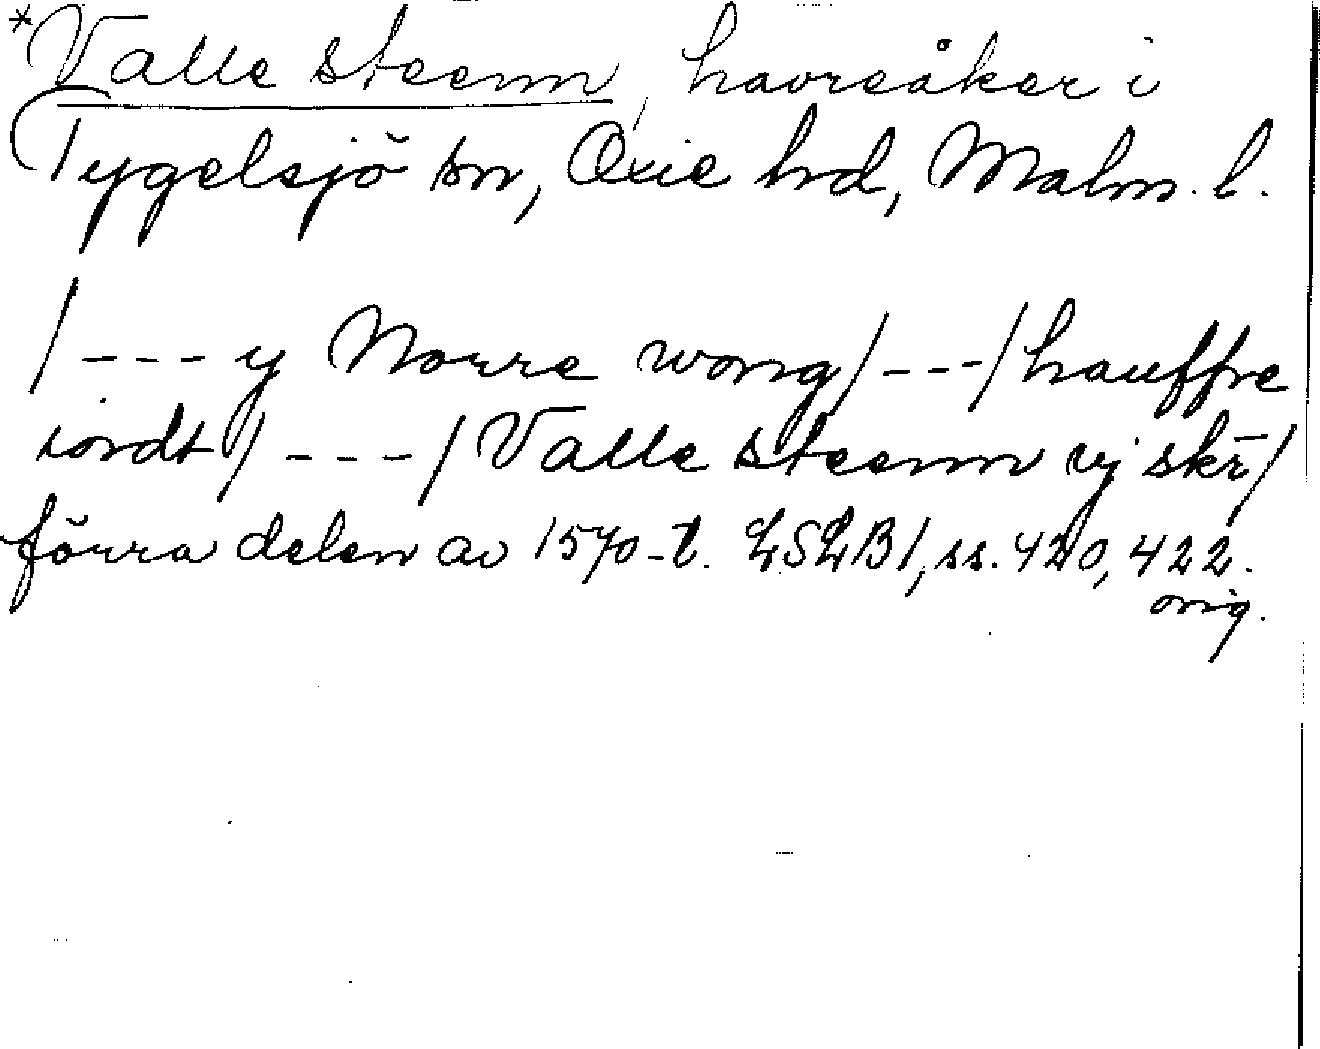 *Valle steenn, havreåker i
Tygelsjö sn, Oxie hd, Malm. l.
/--- y Norre wong/---/hauffre
iordt/---/Valle steenn vj skr̄/
förra delen av 1570-t. LSLB1, ss. 420, 422.
orig.